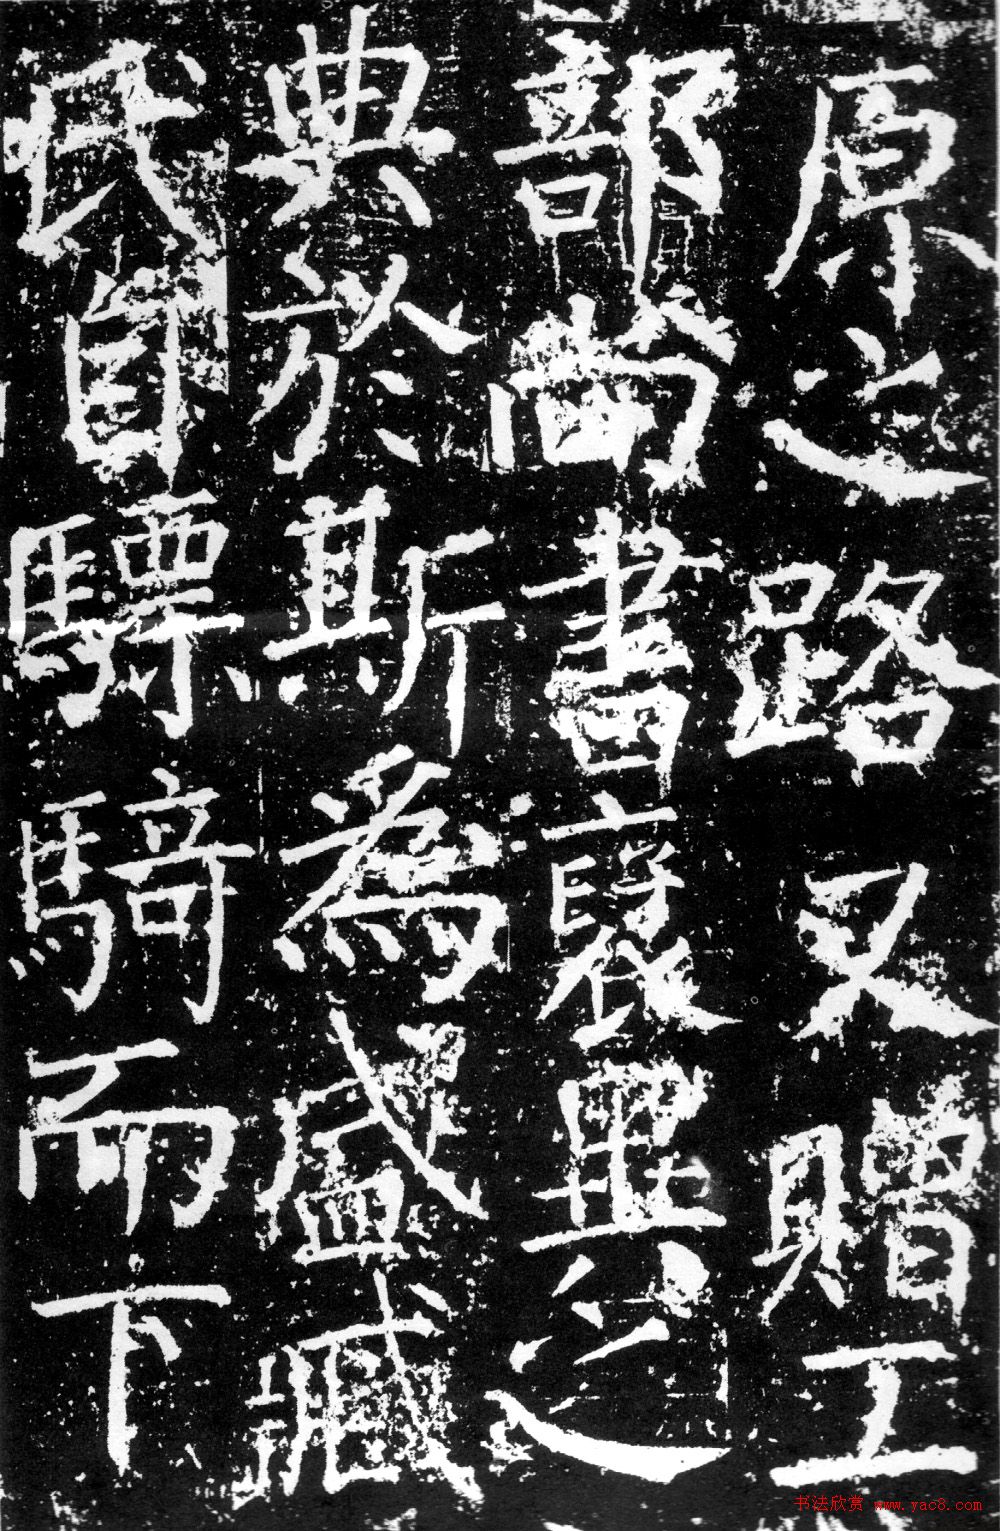 原之路又贈工
部尚書襃盟之
典於斯為盛臧
氏自驃騎而下
书法欣赏 www.yac8.com